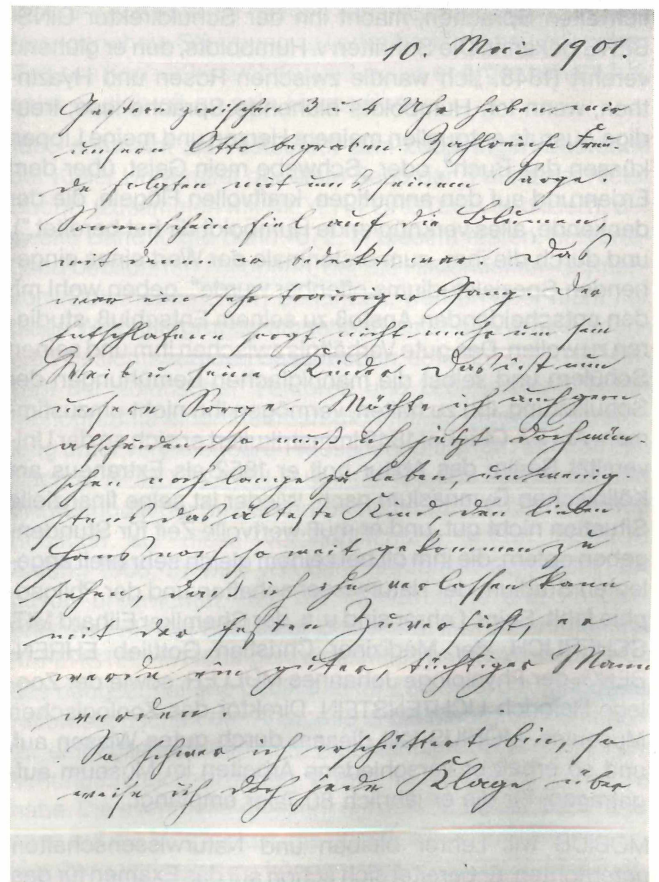 10. Mai 1901.
Gestern zwischen 3 u 4 Uhr haben wir
unsern Otto begraben. Zahlreiche Freun-
de folgten mit uns seinem Sarge.
Sonnenschein fiel auf die Blumen,
mit denen er bedeckt war. Das
war ein sehr trauriger Gang. Der
Entschlafene sorgt nicht mehr um sein
Weib u. seine Kinder. Das ist nun
unsere Sorge. Möchte ich auch gern
abscheiden, so muß ich jetzt doch wün-
schen noch lange zu leben, um wenig-
stens das älteste Kind den lieben
Hans noch so weit gekommen zu
sehen, daß ich ihn verlassen kann
mit der festen Zuversicht, er
werde ein guter, tüchtiger Mann
werden.
So schwer ich erschüttert bin, so
weise ich doch jede Klage über